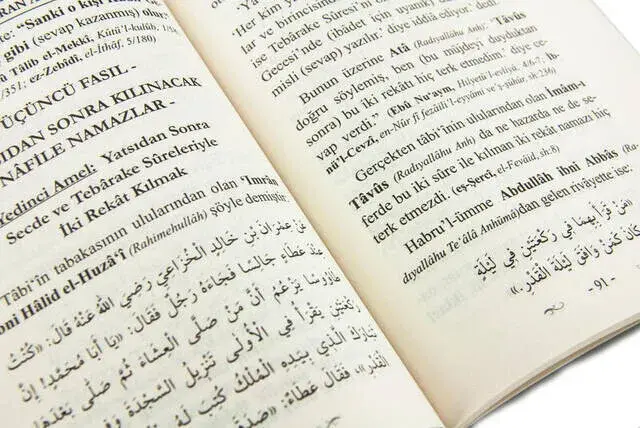 "Sanki o kişi
gibi (sevap kazanmış) olur."
Tâlib el-Mekkî, Kûtü'l-kulûb, 1/
/351; ez-Zebîdî, el-İthâf, 5/180)
ÜÇÜNCÜ FASIL -
SIDAN SONRA KILINACAK
NÂFİLE NAMAZLAR -
Yedinci Amel: Yatsıdan Sonra
Secde ve Tebârake Sûreleriyle
İki Rekât Kılmak
Tâbi'în tabakasının ulularından olan 'İmrân
bni Hâlid el-Huzâ'î (Rahimehullâh) şöyle demiştir:
عَنْ عِمْرَانَ بْنِ خَالِدٍ الْخُزَاعِيِّ رَضِيَ اللهُ عَنْهُ قَالَ: «كُنْتُ
عِنْدَ عَطَاءٍ جَالِسًا فَجَاءَهُ رَجُلٌ فَقَالَ: «يَا أَبَا مُحَمَّدٍ! إِنَّ
طَاوُسًا يَزْعُمُ أَنَّ مَنْ صَلَّى الْعِشَاءَ ثُمَّ صَلَّى بَعْدَهَا
رَكْعَتَيْنِ يَقْرَأُ فِي الْأُولَى تَنْزِيلُ السَّجْدَةَ وَفِي
تَبَارَكَ الَّذِي بِيَدِهِ الْمُلْكُ كُتِبَ لَهُ
الْقَدْرِ»، فَقَالَ عَطَاءٌ: «صَدَقَ
Her kim yatsıdan
lar ve birincisinde
ise Tebârake Sûresi'n
Gecesi'nde (ibadet için uyanık)
misli (sevap) yazılır' diye iddiâ ediyor' dedi.
Bunun üzerine Atâ (Radıyallâhu Anh): 'Tâvûs
doğru söylemiş, ben (bu müjdeyi duyduktan
sonra) bu iki rekâtı hiç terk etmedim' diye ce-
vap verdi." (Ebû Nu'aym, Hilyetü'l-evliyâ, 4/6-7; İb-
nü'l-Cevzî, en-Nûr fî fezâili'l-eyyâmi ve'ş-şühûr, sh:236)
Gerçekten tâbi'în ulularından olan İmâm-ı
Tâvûs (Radıyallâhu Anh) da ne hazarda ne de se-
ferde bu iki sûre ile kılınan iki rekât namazı hiç
terk etmezdi. (eş-Şercî, el-Fevâid, sh:8)
Habru'l-ümme Abdullâh ibni Abbâs
dıyallâhu Te'âlâ Anhümâ)dan gelen rivâyette ise:
«مَنْ قَرَأَ بِهِمَا فِي رَكْعَتَيْنِ فِي لَيْلَةٍ
كَانَ كَمَنْ وَافَقَ لَيْلَةَ الْقَدْرِ.»
- 91 -